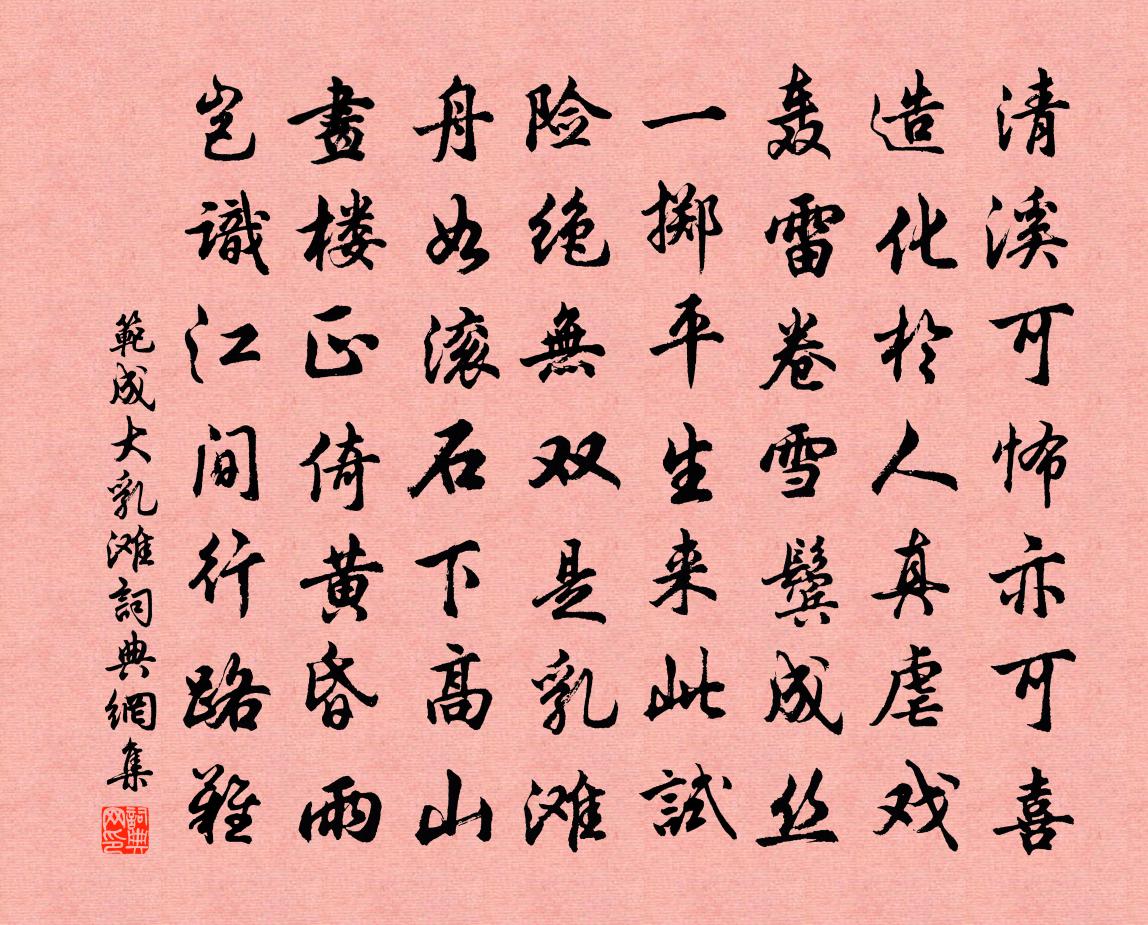 清溪可怖亦可喜
造化於人真虐戏
轰雷卷雪鬓成丝
一掷平生来此試
险绝無双是乳滩
舟如滚石下高山
畫楼正倚黄昏雨
岂識江间行路難
範成大乳滩詞典網集
詞典网印